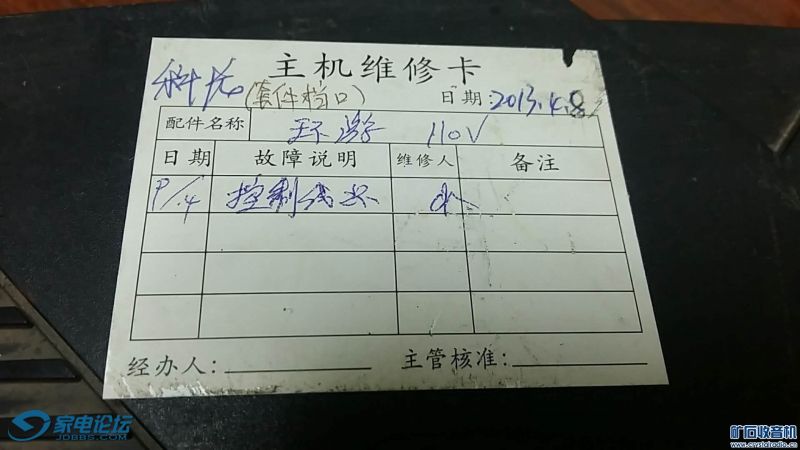 主机维修卡
科龙(套件档口)
日期:2013.4.8
配件名称 环游 110V
日期 故障说明 维修人 备注
控制线坏
经办人: 主管核准:
家电论坛
JDBBS.COM
矿石收音机
www.crystalradio.cn